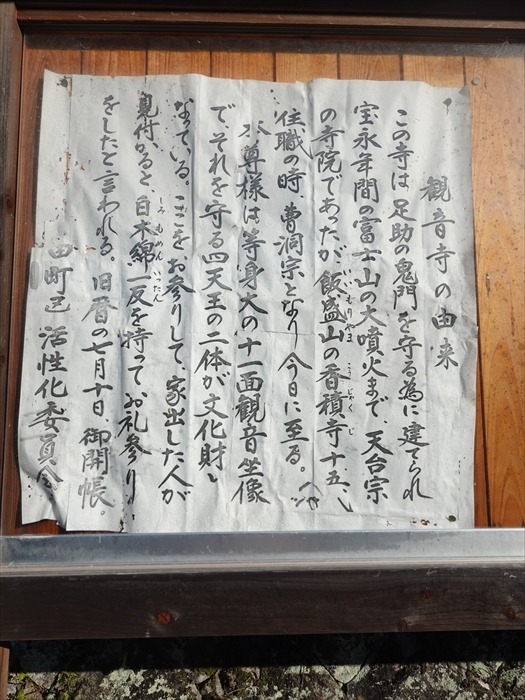 観音寺の由来
この寺は、足助の鬼門を守る為に建てられ
宝永年間の富士山の大噴火まで、天台宗
の寺院であったが、飯盛山の香積寺十五
いもりやま
こうじゃくじ
住職の時、曹洞宗となり今日に至る。
本尊様は等身大の十一面観音坐像
で、それを守る四天王の二体が文化財に
なっている。ここをお参りして、家出した人が
見付かると、白木綿一反を持ってお礼参り
しろもめんいったん
をしたと言われる。旧暦の七月十日、御開帳。
田町区 活性化委員会